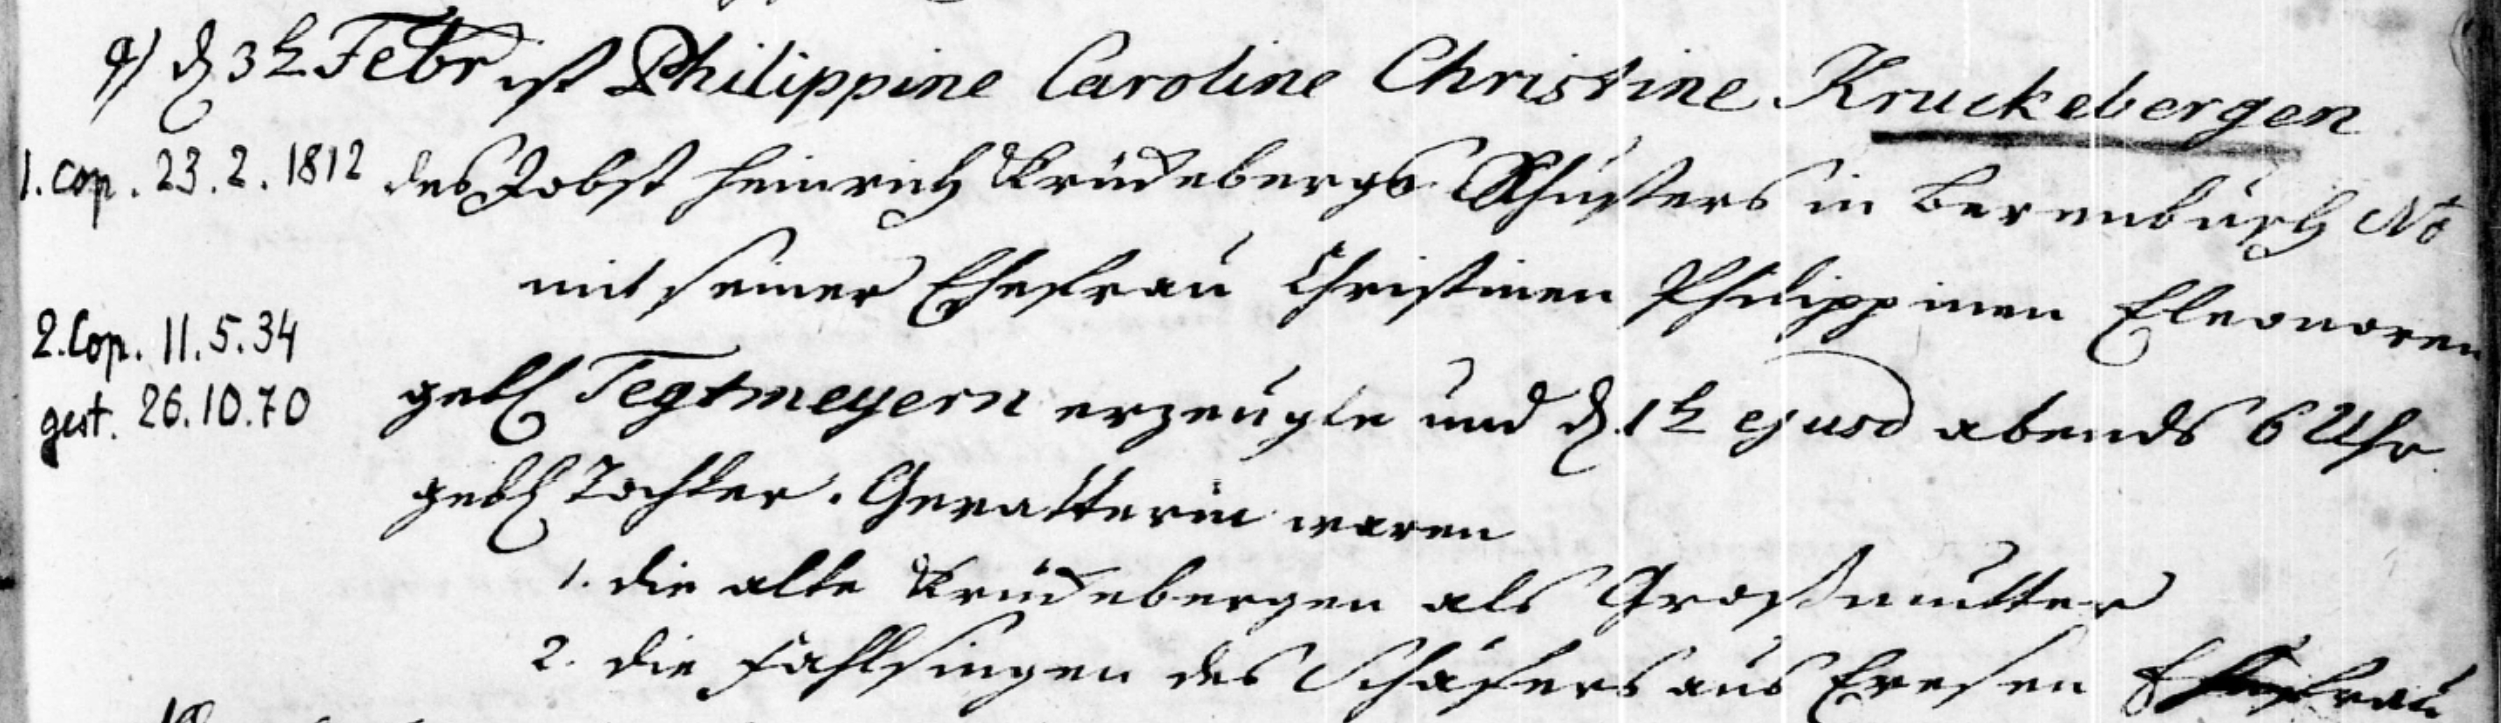 9) d 3t Febr ist Philippine Caroline Christine Kruckebergen
1. cop. 23.2.1812 des Jobst Heinrich Kruckebergs Schusters in Barenburg No
mit seiner Ehefrau Christinen Philippinen Eleonoren
2. Cop. 11.5.34
gebh Tegtmeyern erzeugte und d. 1t ejusd abends 6 Uhr
gest. 26.10.70
gebh Tochter. Gevatterin waren
1. die alte Kruckebergen als Großmutter
2. die Fahlsingen des Schäfers aus Eresen Ehefrau